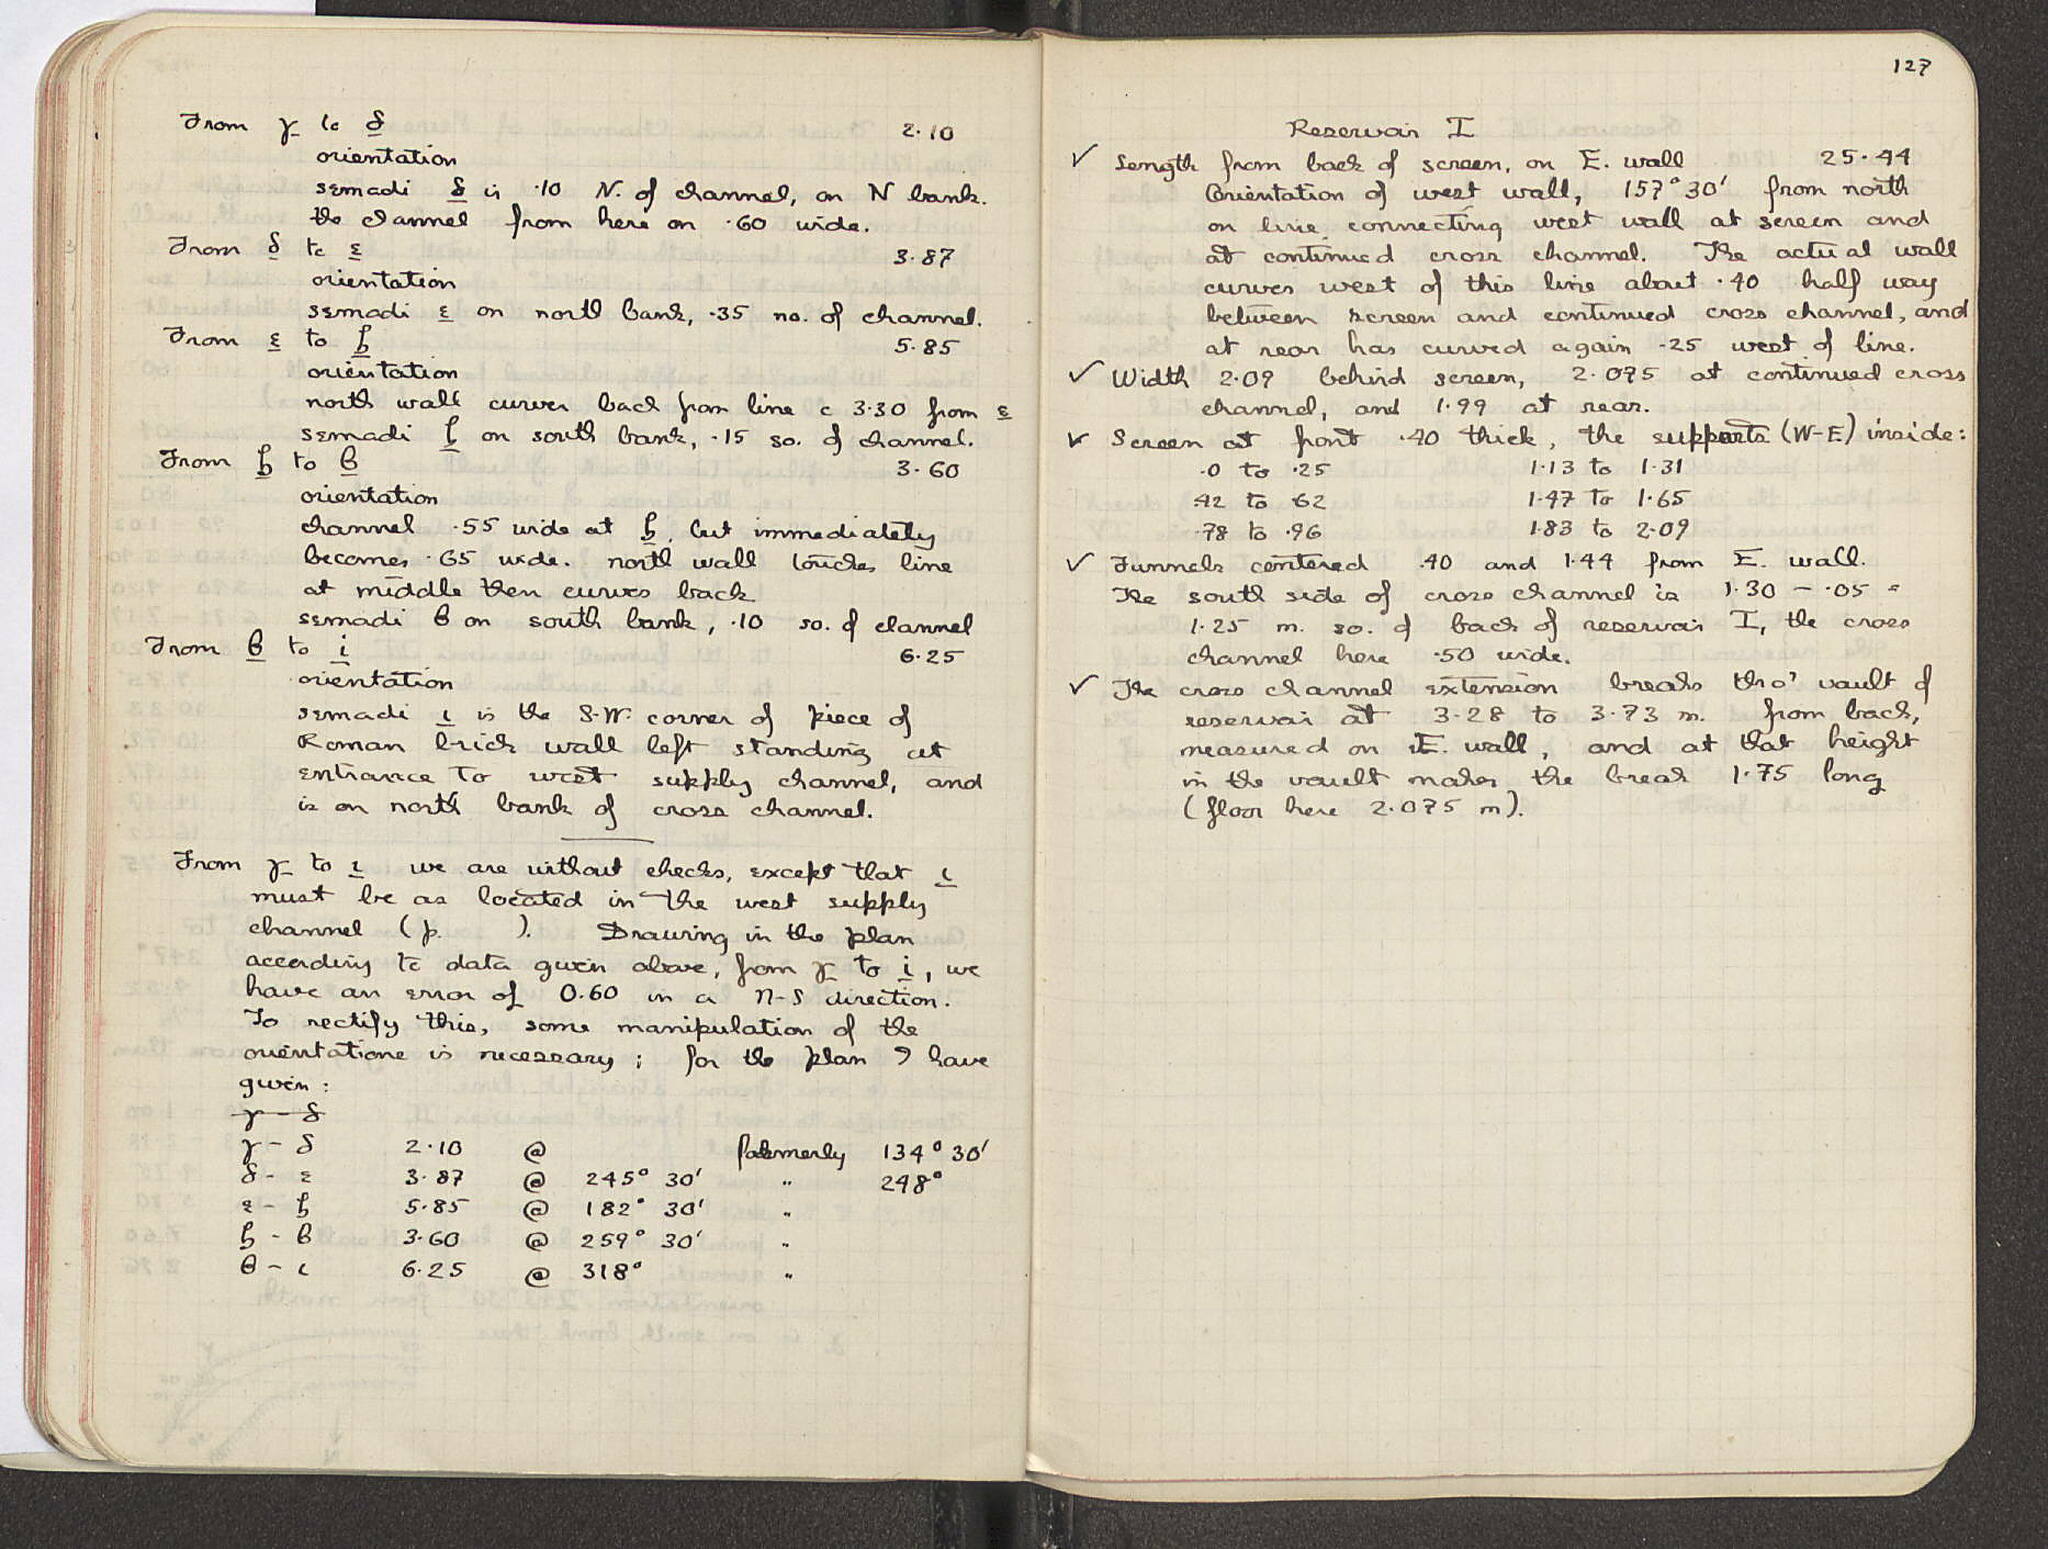 From γ to δ 2.10
orientation
semadi δ is .10 N. of channel, on N bank.
the channel from here on .60 wide.
From δ to ε 3.87
orientation
semadi ε on north bank, .35 no. of channel.
From ε to ζ 5.85
orientation
north wall curves back from line c 3.30 from ε
semadi ζ on south bank, .15 so. of channel.
From ζ to θ 3.60
orientation
channel .55 wide at ζ, but immediately
becomes .65 wide. north wall touches line
at middle then curves back
semadi θ on south bank, .10 so. of channel
From θ to ι 6.25
orientation
semadi ι is the S.W. corner of piece of
Roman brick wall left standing at
entrance to west supply channel, and
is on north bank of cross channel.
From γ to ι we are without checks, except that ι
must be as located in the west supply
channel (p. ). Drawing in the plan
according to data given above, from γ to ι, we
have an error of 0.60 in a N-S direction.
To rectify this, some manipulation of the
orientations is necessary; for the plan I have
given:
γ - δ
γ - δ 2.10 @ formerly 134° 30'
δ - ε 3.87 @ 245° 30' " 248°
ε - ζ 5.85 @ 182° 30' "
ζ - θ 3.60 @ 259° 30' "
θ - ι 6.25 @ 318° "
127
Reservoir I
✓ Length from back of screen, on E. wall 25.44
Orientation of west wall, 157° 30' from north
on line connecting west wall at screen and
at continued cross channel. The actual wall
curves west of this line about .40 half way
between screen and continued cross channel, and
at rear has curved again .25 west of line.
✓ Width 2.09 behind screen, 2.075 at continued cross
channel, and 1.99 at rear.
✓ Screen at front .40 thick, the supports (W-E) inside:
.0 to .25 1.13 to 1.31
.42 to .62 1.47 to 1.65
.78 to .96 1.83 to 2.09
✓ Funnels centered .40 and 1.44 from E. wall.
The south side of cross channel is 1.30 - .05 =
1.25 m. so. of back of reservoir I, the cross
channel here .50 wide.
✓ The cross channel extension breaks thro' vault of
reservoir at 3.28 to 3.73 m. from back,
measured on E. wall, and at that height
in the vault makes the break 1.75 long
(floor here 2.075 m).